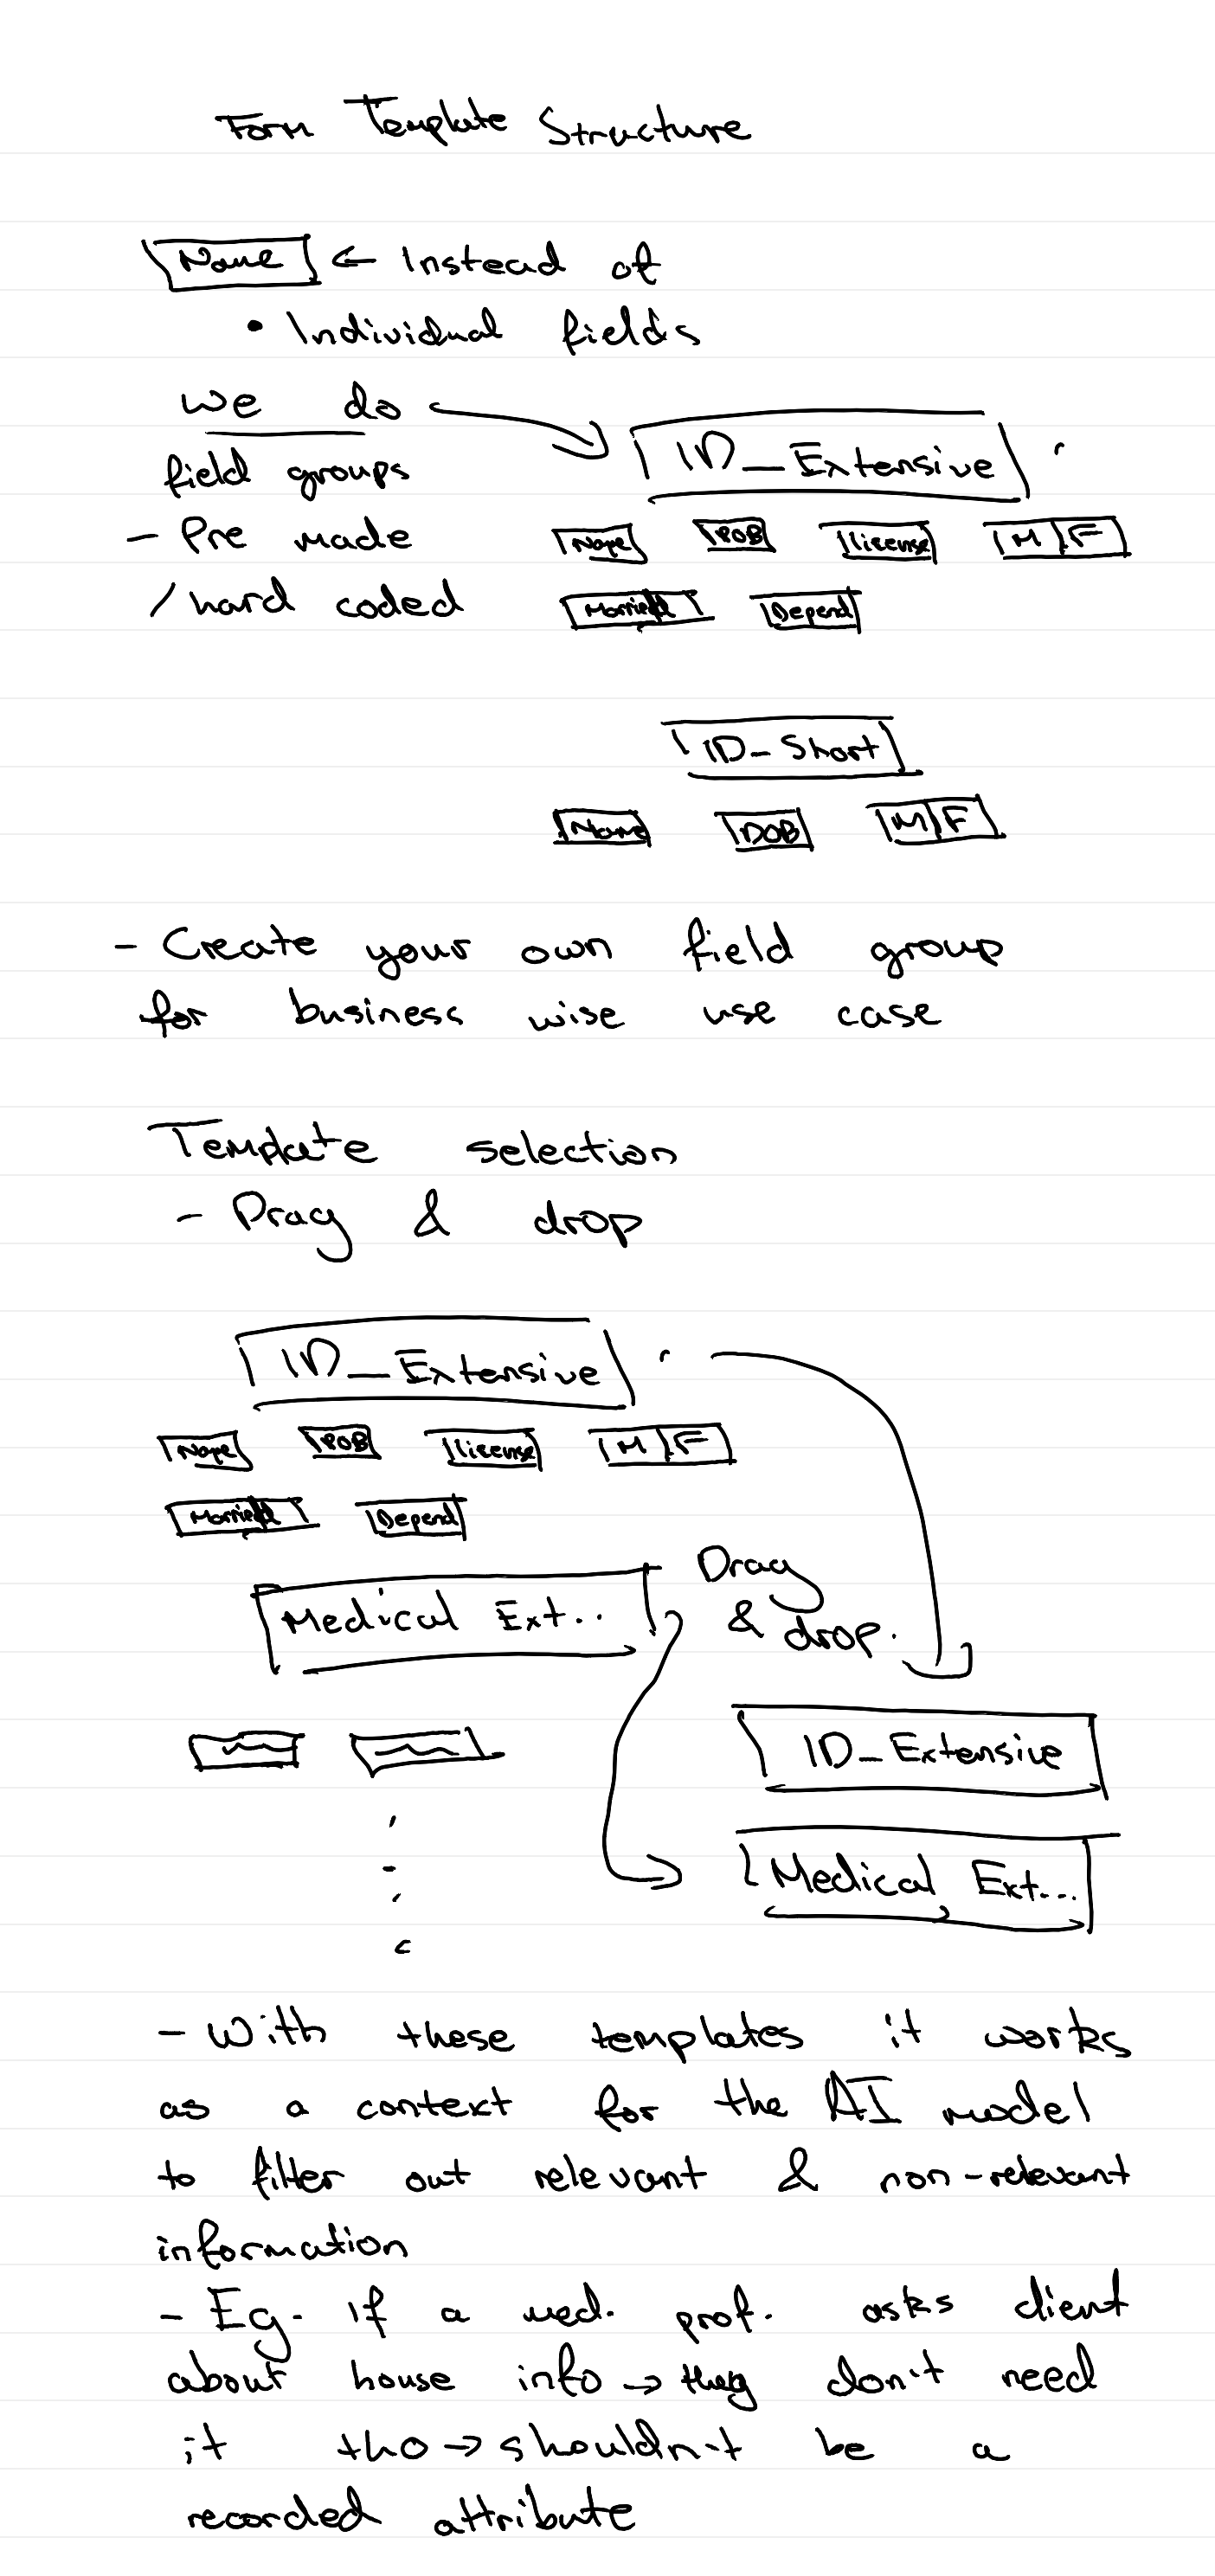 Form Template Structure
Name ← Instead of
• Individual fields
we do
ID_Extensive
field groups
- Pre made
Name DOB license M F
/ hard coded
Married Depend
ID_Short
Name DOB M F
- Create your own field group
for business wise use case
Template selection
- Drag & drop
ID_Extensive
Name DOB license M F
Married Depend
Drag
Medical Ext..
& drop.
ID_Extensive
Medical Ext...
- With these templates it works
as a context for the AI model
to filter out relevant & non-relevant
information
- Eg. If a med. prof. asks client
about house info → they don't need
it tho → shouldn't be a
recorded attribute